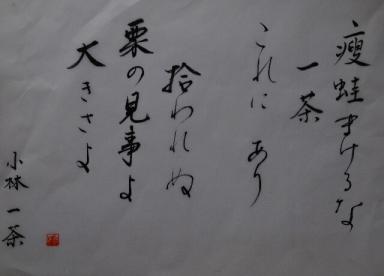 痩蛙まけるな
一茶
これにあり
拾われぬ
栗の見事よ
大きさよ
小林一茶